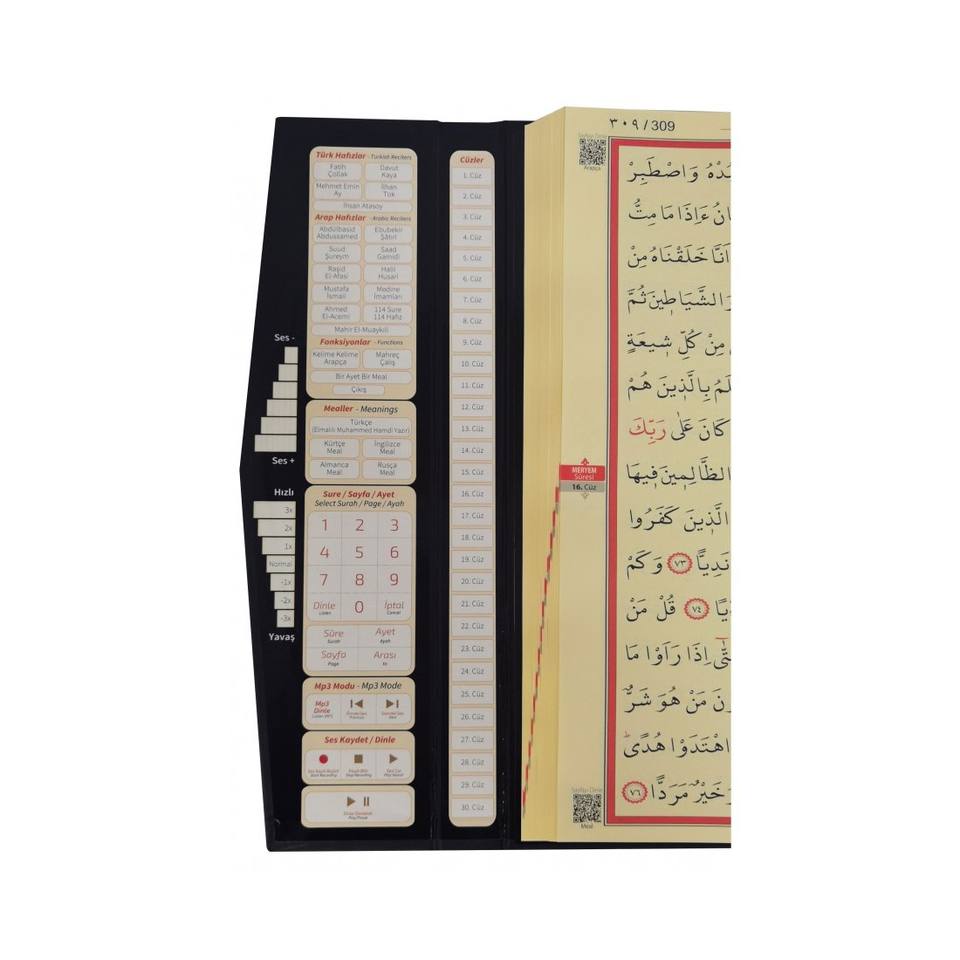 Ses -
Ses +
Hızlı
3x
2x
1x
Normal
-1x
-2x
-3x
Yavaş
Türk Hafızlar - Turkish Reciters
Fatih Çollak
Davut Kaya
Mehmet Emin Ay
İlhan Tok
İhsan Atasoy
Arap Hafızlar - Arabic Reciters
Abdülbasid Abdussamed
Ebubekir Şâtıri
Suud Şureym
Saad Gamidî
Raşid El-Afasi
Halil Husari
Mustafa İsmail
Medine İmamları
Ahmed El-Acemi
114 Sure 114 Hafız
Mahir El-Muaykıli
Fonksiyonlar - Functions
Kelime Kelime Arapça
Mahreç Çalış
Bir Ayet Bir Meal
Çıkış
Mealler - Meanings
Türkçe
(Elmalılı Muhammed Hamdi Yazır)
Kürtçe Meal
İngilizce Meal
Almanca Meal
Rusça Meal
Sure / Sayfa / Ayet
Select Surah / Page / Ayah
1 2 3
4 5 6
7 8 9
Dinle 0 İptal
Listen Cancel
Sûre Ayet
Surah Ayah
Sayfa Arası
Page to
Mp3 Modu - Mp3 Mode
Mp3 Dinle
Ses Kaydet / Dinle
Play/Pause
Cüzler
1. Cüz
2. Cüz
3. Cüz
4. Cüz
5. Cüz
6. Cüz
7. Cüz
8. Cüz
9. Cüz
10. Cüz
11. Cüz
12. Cüz
13. Cüz
14. Cüz
15. Cüz
16. Cüz
17. Cüz
18. Cüz
19. Cüz
20. Cüz
21. Cüz
22. Cüz
23. Cüz
24. Cüz
25. Cüz
26. Cüz
27. Cüz
28. Cüz
29. Cüz
30. Cüz
٣٠٩ / 309
Arapça
MERYEM
Sûresi
16. Cüz
Meal
وَاصْطَبِرْ
ءَاِذَا مَا مِتُّ
خَلَقْنَاهُ مِنْ
الشَّيَاطِينَ ثُمَّ
مِنْ كُلِّ شِيعَةٍ
بِالَّذِينَ هُمْ
كَانَ عَلٰى رَبِّكَ
الظَّالِمِينَ فِيهَا
الَّذِينَ كَفَرُوا
نَدِيًّا ٧٣ وَكَمْ
٧٤ قُلْ مَنْ
اِذَا رَاَوْا مَا
مَنْ هُوَ شَرٌّ
اهْتَدَوْا هُدًى
خَيْرٌ مَرَدًّا ٧٦